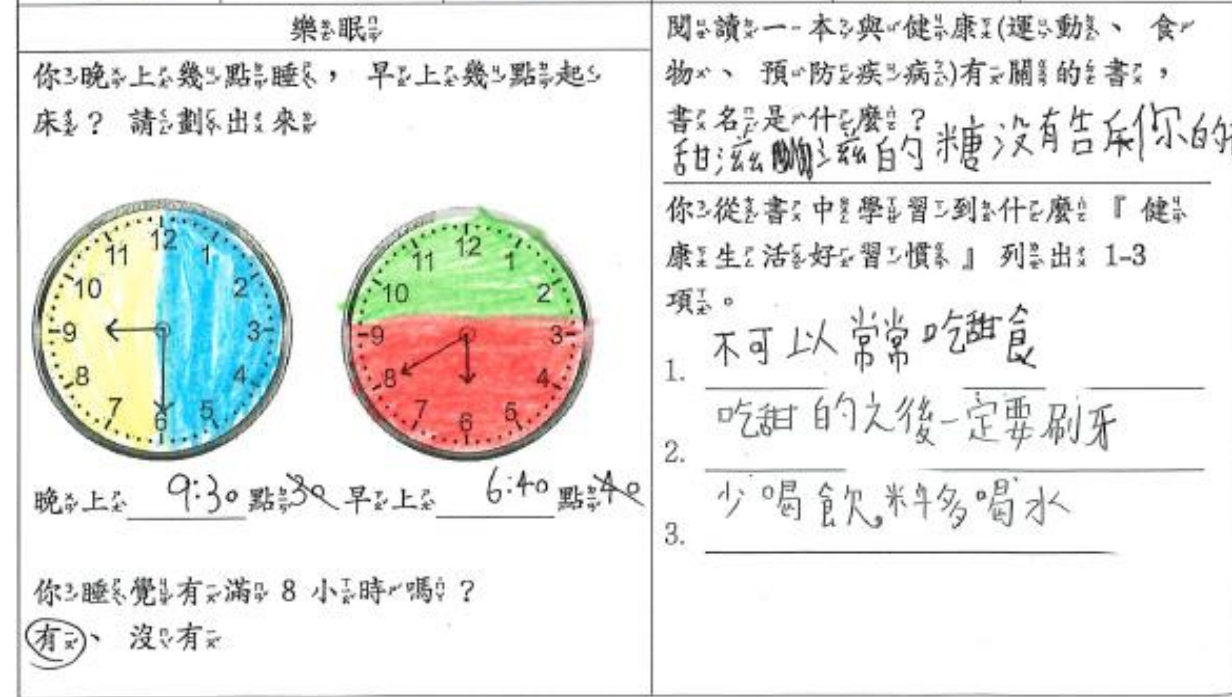 樂眠
你晚上幾點睡, 早上幾點起
床? 請劃出來
12
11
1
10
2
9
3
8
4
7
5
6
12
11
1
10
2
9
3
8
4
7
5
6
晚上 9:30 點 30 早上 6:40 點 40
你睡覺有滿 8 小時嗎?
有、 沒有
閱讀一本與健康(運動、 食
物、 預防疾病)有關的書,
書名是什麼?
甜滋滋的糖沒有告訴你的
你從書中學習到什麼『 健
康生活好習慣 』 列出 1-3
項。
1. 不可以常常吃甜食
2. 吃甜的之後一定要刷牙
3. 少喝飲料多喝水